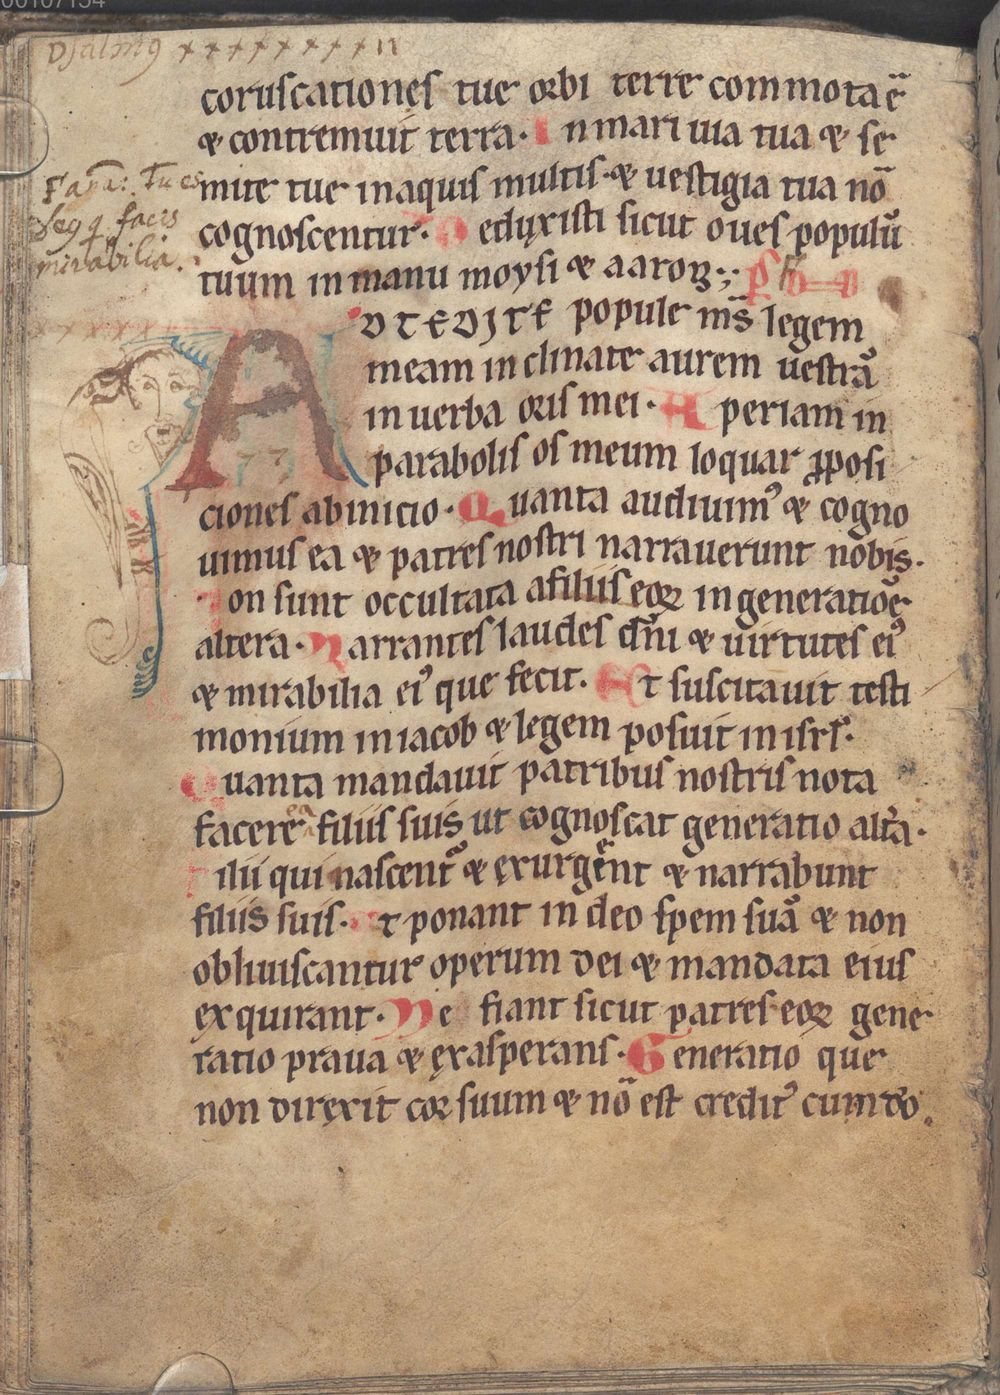 00107154
psalmꝰ xxxxxxxxii
coruscationes tue orbi terre commota ē
⁊ contremuit terra. In mari uia tua ⁊ se
mite tue in aquis multis. ⁊ uestigia tua nō
Tu es
seqͥ facis
mirabilia.
cognoscentur. Deduxisti sicut oues populū
tuum in manu moysi ⁊ aaron.
ADTEDITE popule ms̄ legem
meam inclinate aurem uestrā
in uerba oris mei. Aperiam in
77
parabolis os meum loquar ꝓposi
ciones ab inicio. Quanta audiuimꝰ ⁊ cogno
uimus ea ⁊ patres nostri narrauerunt nobis.
Non sunt occultata a filiis eoꝝ in generatiōe
altera. Narrantes laudes dn̄i ⁊ uirtutes eiꝰ
⁊ mirabilia eiꝰ que fecit. Et suscitauit testi
monium in iacob ⁊ legem posuit in isrł.
Quanta mandauit patribus nostris nota
facere ea filiis suis ut cognoscat generatio alt̄a.
Filii qui nascent᷑ ⁊ exurgent ⁊ narrabunt
filiis suis. Ut ponant in deo spem suā ⁊ non
obliuiscantur operum dei ⁊ mandata eius
exquirant. Ne fiant sicut patres eoꝝ gene
ratio praua ⁊ exasperans. Generatio que
non direxit cor suum ⁊ nō est creditꝰ cum dō